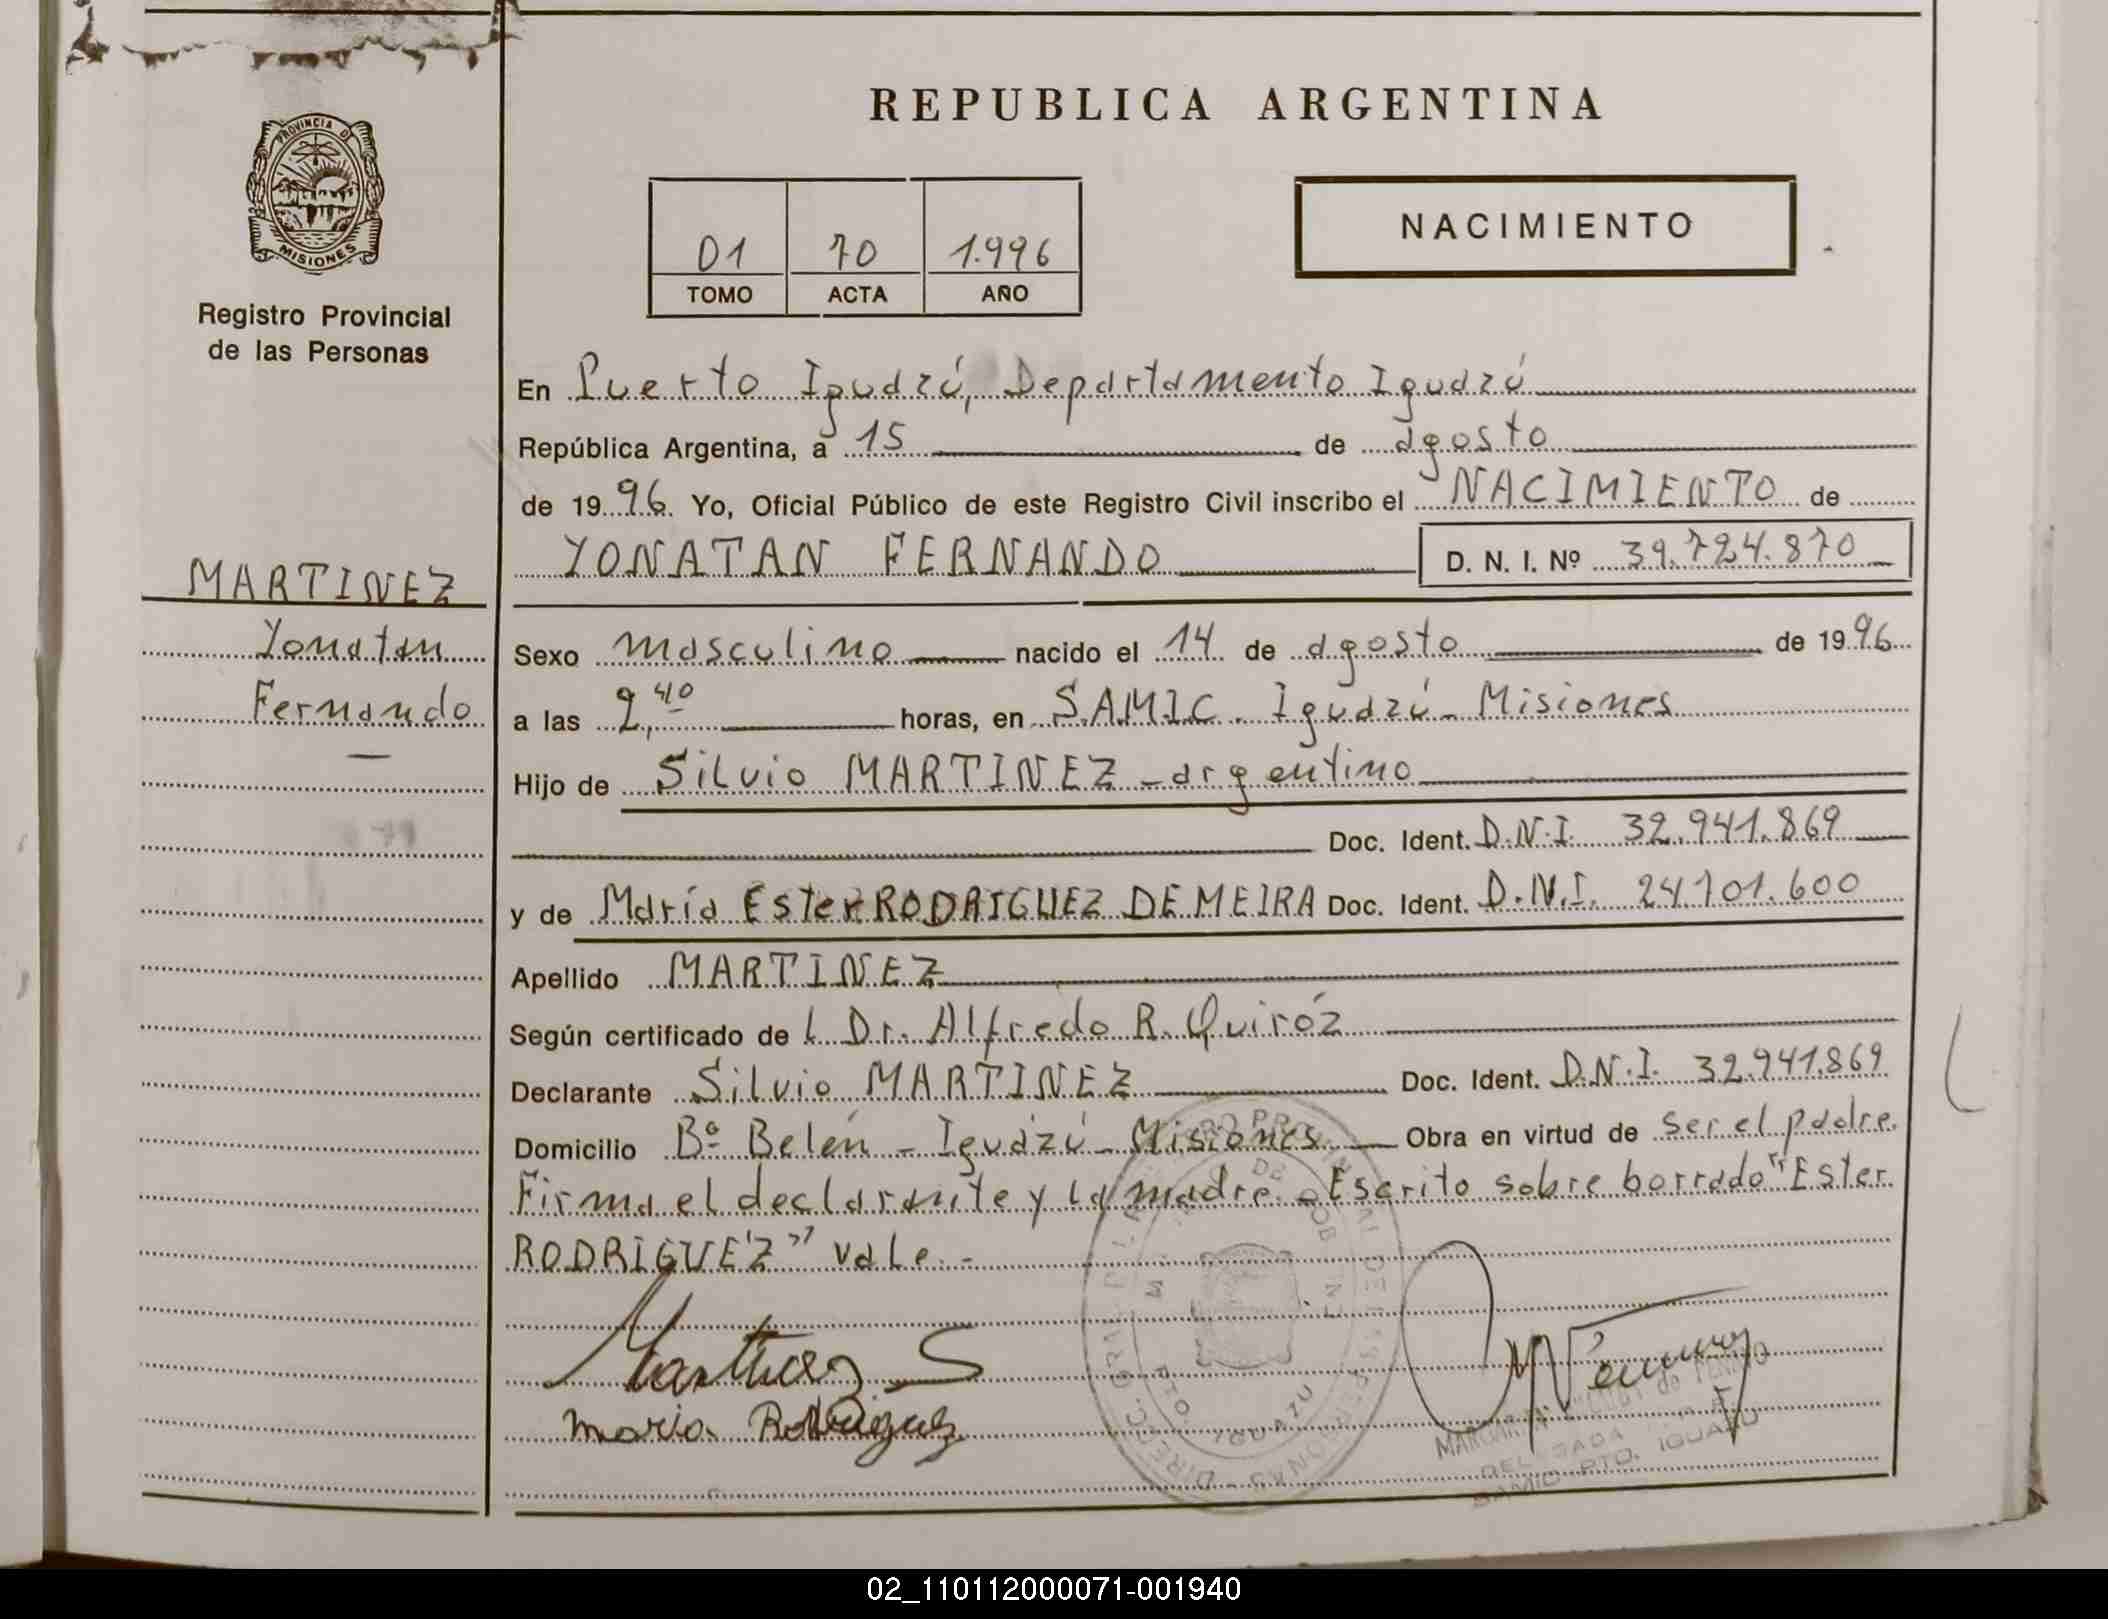 REPUBLICA ARGENTINA
PROVINCIA D
MISIONES
Registro Provincial
de las Personas
01 70 1.996
TOMO ACTA AÑO
NACIMIENTO
En Puerto Iguazú, Departamento Iguazú
República Argentina, a 15 de agosto
de 1996. Yo, Oficial Público de este Registro Civil inscribo el NACIMIENTO de
YONATAN FERNANDO D. N. I. Nº 39.724.870
MARTINEZ
Yonatan
Fernando
Sexo masculino nacido el 14 de agosto de 1996
a las 2,40 horas, en S.A.M.I.C. Iguazú - Misiones
Hijo de Silvio MARTINEZ - argentino
Doc. Ident. D.N.I. 32.941.869
y de María Ester RODRIGUEZ DE MEIRA Doc. Ident. D.N.I. 24.701.600
Apellido MARTINEZ
Según certificado de l Dr. Alfredo R. Quiróz
Declarante Silvio MARTINEZ Doc. Ident. D.N.I. 32.941.869
Domicilio Bº Belén - Iguazú - Misiones Obra en virtud de ser el padre.
Firma el declarante y la madre. - Escrito sobre borrado "Ester
RODRIGUEZ" vale. -
Martinez S
Maria Rodriguez
PTO. IGUAZU
DELEGADA
SAMIC PTO. IGUAZU
02_110112000071-001940